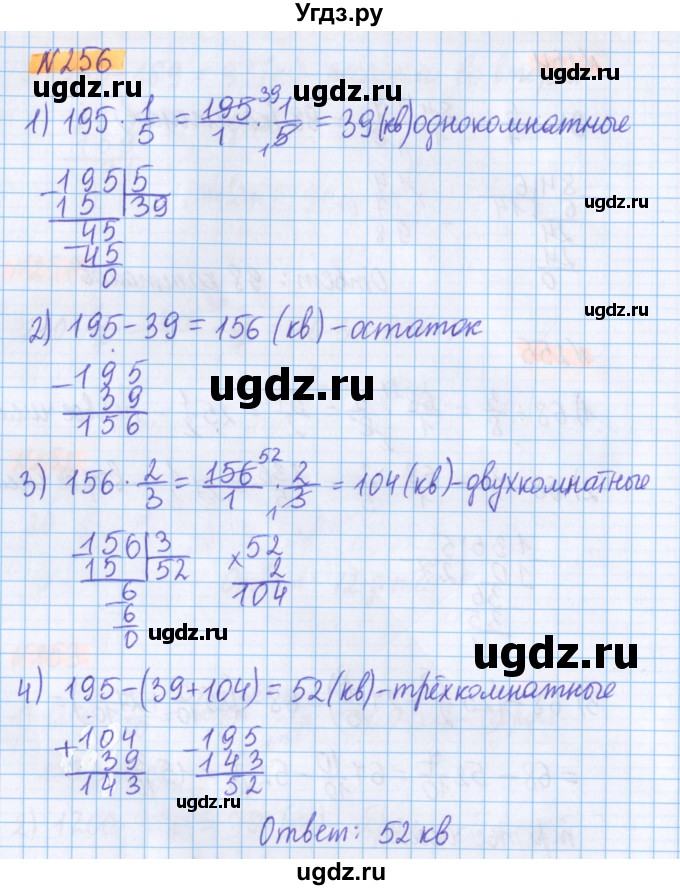 Угдз.ру
N256
ugdz.ru ugdz.ru ugdz.ru
1) 195 · 1/5 = 195/1 · 1/5 = 39 (кв) однокомнатные
39
1
ugdz.ru
195 | 5
15 | 39
45
45
0
ugdz.ru
2) 195 - 39 = 156 (кв) - остаток
- 195
39
156
ugdz.ru
ugdz.ru
3) 156 · 2/3 = 156/1 · 2/3 = 104 (кв) - двухкомнатные
52
1
ugdz.ru
156 | 3
15 | 52
6
6
0
× 52
2
104
ugdz.ru
ugdz.ru
4) 195 - (39 + 104) = 52 (кв) - трёхкомнатные
+ 104
39
143
- 195
143
52
ugdz.ru
ugdz.ru
Ответ: 52 кв
ugdz.ru
ugdz.ru